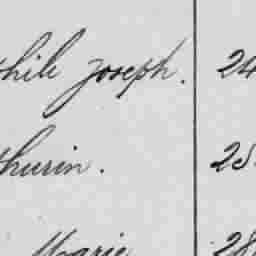 hile Joseph. 24
thurin. 25
Marie 28